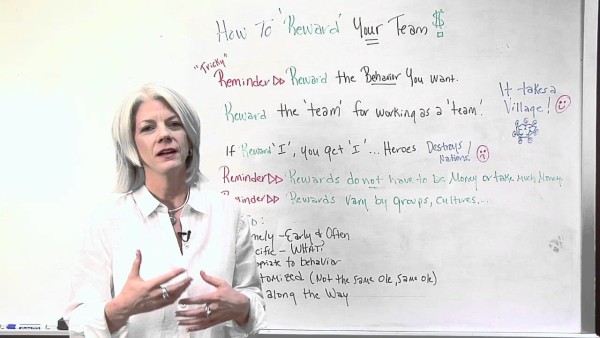 How To 'Reward' Your Team $!
"Tricky"
Reminder ▷▷ Reward the Behavior You want.
It takes a
Village!
Reward the 'team' for working as a 'team'.
If Reward 'I', you get 'I'... Heroes Destroys/
Nations.
Reminder ▷▷ Rewards do not have to be Money or take Much Money.
Reminder ▷▷ Rewards vary by groups, cultures...
mely - Early & Often
cific - WHAT!
opriate to behavior
tomized (Not the same ole, same ole)
along the Way